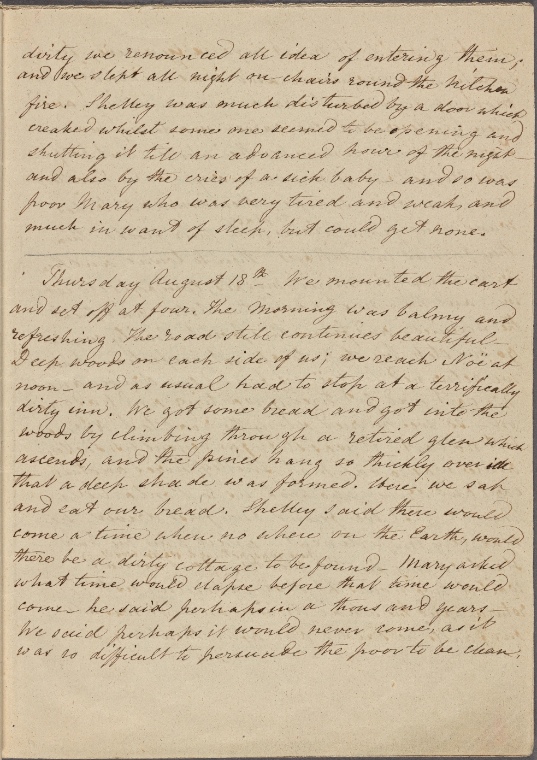 dirty we renounced all idea of entering them;
and we slept all night on chairs round the kitchen
fire. Shelley was much disturbed by a door which
creaked whilst some one seemed to be opening and
shutting it till an advanced hour of the night—
and also by the cries of a sick baby— and so was
poor Mary who was very tired and weak, and
much in want of sleep, but could get none.
Thursday August 18th We mounted the cart
and set off at four. The morning was balmy and
refreshing. The road still continues beautiful—
Deep woods on each side of us; we reach Noë at
noon— and as usual had to stop at a terrifically
dirty inn. We got some bread and got into the
woods by climbing through a retired glen which
ascends, and the pines hang so thickly over it
that a deep shade was formed. Here we sat
and eat our bread. Shelley said there would
come a time when no where on the Earth, would
there be a dirty cottage to be found— Mary asked
what time would elapse before that time would
come— he said perhaps in a thousand years—
We said perhaps it would never come, as it
was so difficult to persuade the poor to be clean.